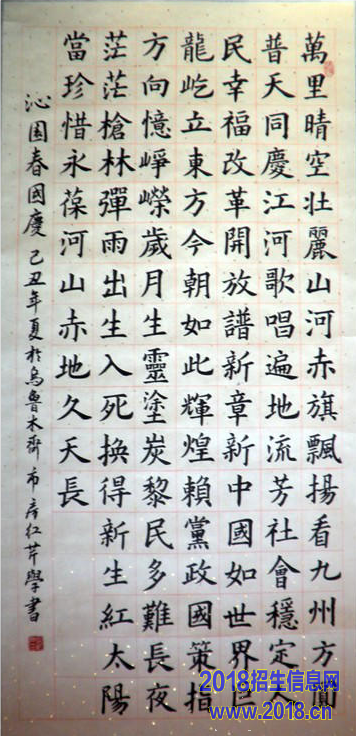 萬里晴空壮麗山河赤旗飄揚看九州方
普天同慶江河歌唱遍地流芳社會穩定人
民幸福改革開放譜新章新中國如世界巨
龍屹立東方今朝如此輝煌賴黨政國策指
方向憶崢嶸歲月生靈塗炭黎民多難長夜
茫茫槍林彈雨出生入死換得新生紅太陽
當珍惜永葆河山赤地久天長
沁園春國慶 己丑年夏於烏魯木齊市红芹學書
2018招生信息网
www.2018.cn